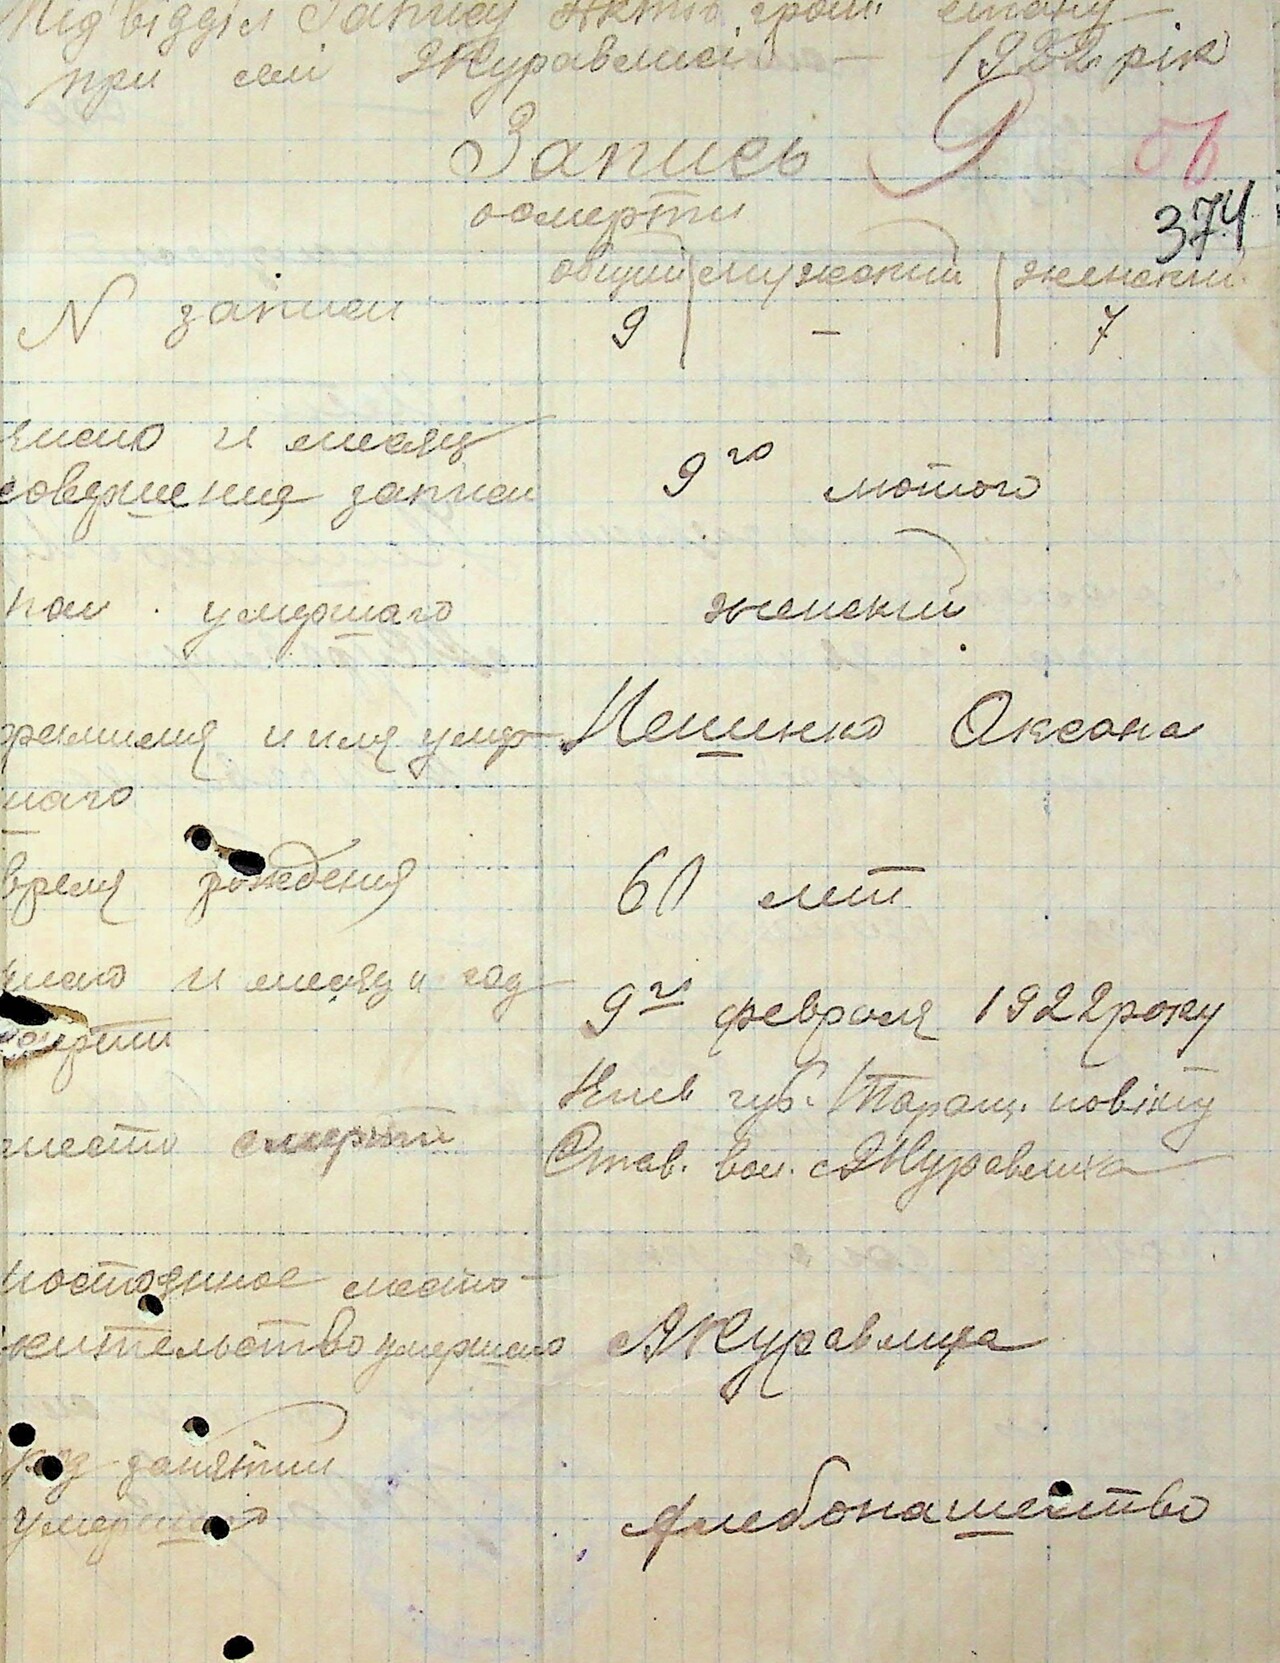 Підвідділ Запису актів гром. стану
при селі Журавлисі — 1922 рік
Запись 9
56
о смерти
374
общий мужский женский
N записи 9 – 7
число и месяц
совершения записи 9го лютого
пол умершаго женский
фамилия и имя умер- Ищенко Оксана
шаго
время рождения 60 лет
число и месяц и год
смерти 9го февраля 1922 року
Киев. губ. Таращ. повіту
место смерти Став. вол. с Журавлиха
постоянное место-
жительство умершаго с Журавлиха
род занятий
умершаго хлебопашество